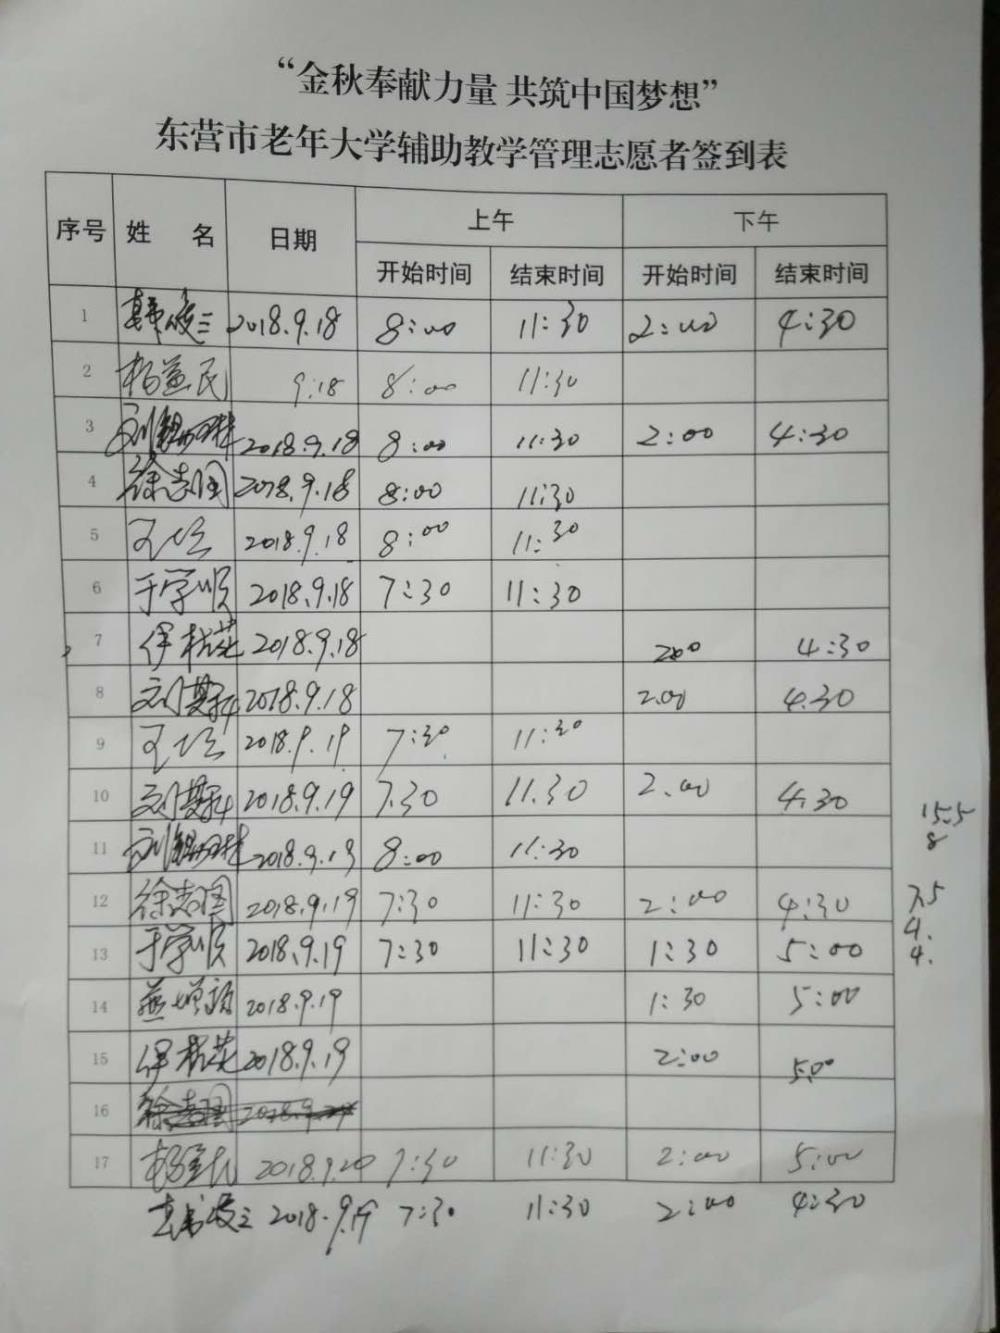 “金秋奉献力量 共筑中国梦想”
东营市老年大学辅助教学管理志愿者签到表
序号 姓 名 日期 上午 下午
开始时间 结束时间 开始时间 结束时间
1 2018.9.18 8:00 11:30 2:00 4:30
2 杨益民 9.18 8:00 11:30
3 2018.9.18 8:00 11:30 2:00 4:30
4 徐志国 2018.9.18 8:00 11:30
5 2018.9.18 8:00 11:30
6 于学顺 2018.9.18 7:30 11:30
7 伊桂花 2018.9.18 200 4:30
8 2018.9.18 2.00 4.30
9 2018.9.19 7:30 11:30
10 2018.9.19 7.30 11.30 2.00 4.30
11 2018.9.19 8:00 11:30
12 徐志国 2018.9.19 7:30 11:30 2:00 4:30
13 于学顺 2018.9.19 7:30 11:30 1:30 5:00
14 2018.9.19 1:30 5:00
15 伊桂花 2018.9.19 2:00 5.00
16
17 2018.9.20 7:30 11:30 2:00 5:00
2018.9.19 7:30 11:30 2:00 4:30
15.5
8
7.5
4.
4.